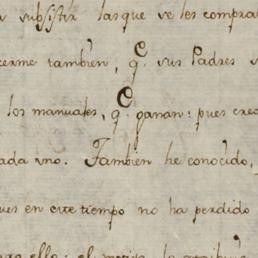 subsistir las que se les compra
cerme tambien, q.e sus Padres
los manuales, q.e ganan: pues creo
ada uno. Tambien he conocido,
ues en este tiempo no ha perdido